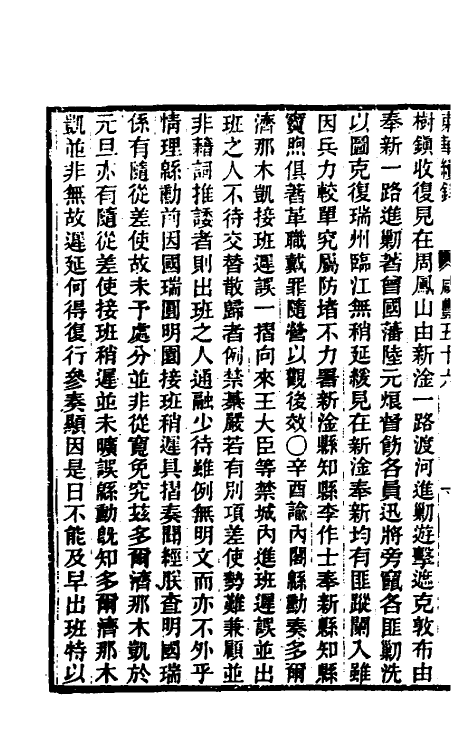 東華續錄　咸豐五十六
樹鎮收復見在周鳳山由新淦一路渡河進勦遊擊遮克敦布由
奉新一路進勦著曾國藩陸元烺督飭各員迅將旁竄各匪勦洗
以圖克復瑞州臨江無稍延緩見在新淦奉新均有匪蹤闌入雖
因兵力較單究屬防堵不力署新淦縣知縣李作士奉新縣知縣
寶煦俱著革職戴罪隨營以觀後效〇辛酉諭內閣緜勳奏多爾
濟那木凱接班遲誤一摺向來王大臣等禁城內進班遲誤並出
班之人不待交替散歸者例禁綦嚴若有別項差使勢難兼顧並
非藉詞推諉者則出班之人通融少待雖例無明文而亦不外乎
情理緜勳前因國瑞圓明園接班稍遲具摺奏聞經朕查明國瑞
係有隨從差使故未予處分並非從寬免究茲多爾濟那木凱於
元旦亦有隨從差使接班稍遲並未曠誤緜勳既知多爾濟那木
凱並非無故遲延何得復行參奏顯因是日不能及早出班特以